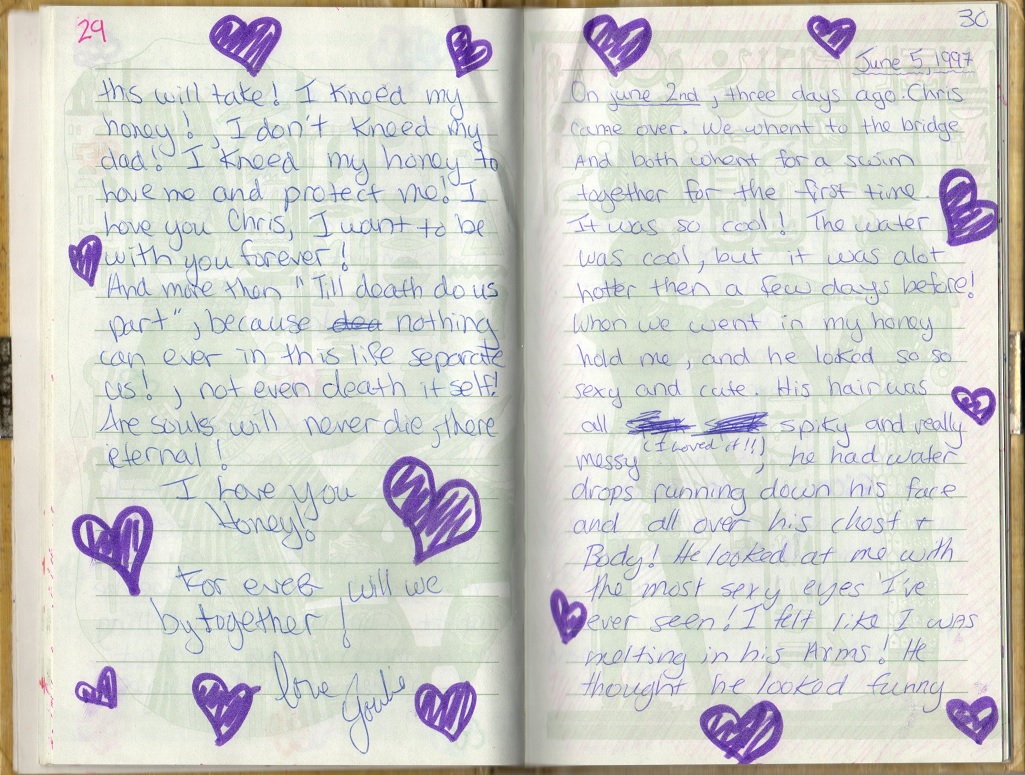 29
this will take! I Kneed my
honey!, I don't Kneed my
dad! I Kneed my honey to
have me and protect me! I
love you Chris, I want to be
with you forever!
And more then "Till death do us
part", because dea nothing
can ever in this life separate
us!, not even death itself!
Are souls will never die, there
eternal!
I Love you
Honey!
For ever will we
by together!
love Julie
30
June 5, 1997
On june 2nd, three days ago Chris
came over. We whent to the bridge
And both whent for a swim
together for the first time
It was so cool! The water
was cool, but it was alot
hotter then a few days before!
When we went in my honey
held me, and he loked so so
sexy and cute. His hair was
all spiky and really
messy (I loved it!!!), he had water
drops running down his face
and all over his chest +
Body! He looked at me with
the most sexy eyes I've
ever seen! I felt like I was
melting in his Arms! He
thought he looked funny